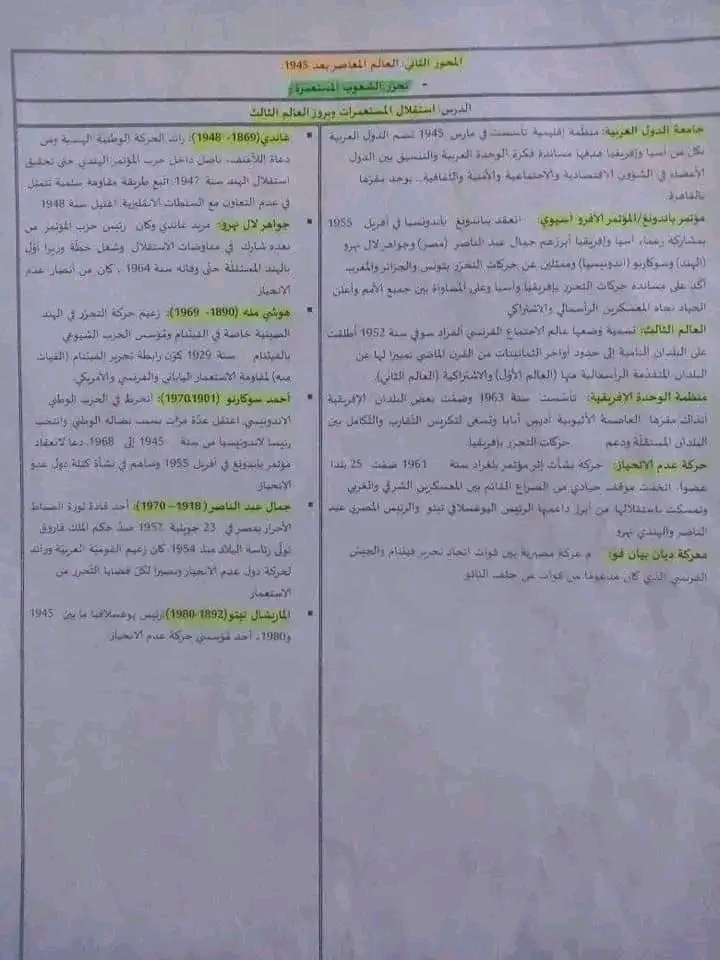 المحور الثاني: العالم المعاصر بعد 1945:
- تحرر الشعوب المستعمرة:
الدرس: استقلال المستعمرات وبروز العالم الثالث
جامعة الدول العربية: منظمة إقليمية تأسست في مارس 1945 تضم الدول العربية
بكل من آسيا وإفريقيا هدفها مساندة فكرة الوحدة العربية والتنسيق بين الدول
الأعضاء في الشؤون الاقتصادية والاجتماعية والأمنية والثقافية.. يوجد مقرها
بالقاهرة.
مؤتمر باندونغ/المؤتمر الافرو آسيوي: انعقد بباندونغ بأندونيسيا في أفريل 1955
بمشاركة زعماء آسيا وإفريقيا أبرزهم جمال عبد الناصر (مصر) وجواهر لال نهرو
(الهند) وسوكارنو (اندونيسيا) وممثلين عن حركات التحرر بتونس والجزائر والمغرب.
أكد على مساندة حركات التحرر بإفريقيا وآسيا وعلى المساواة بين جميع الأمم وأعلن
الحياد تجاه المعسكرين الرأسمالي والاشتراكي
العالم الثالث: تسمية وضعها عالم الاجتماع الفرنسي ألفراد سوفي سنة 1952 أطلقت
على البلدان النامية إلى حدود أواخر الثمانينات من القرن الماضي تمييزا لها عن
البلدان المتقدمة الرأسمالية منها (العالم الأول) والاشتراكية (العالم الثاني).
منظمة الوحدة الإفريقية: تأسست سنة 1963 وضمت بعض البلدان الإفريقية
آنذاك مقرها العاصمة الأثيوبية أديس أبابا وتسعى لتكريس التقارب والتكامل بين
البلدان المستقلة ودعم حركات التحرر بإفريقيا.
حركة عدم الانحياز: حركة نشأت إثر مؤتمر بلغراد سنة 1961 ضمت 25 بلدا
عضوا. اتخذت موقف حيادي من الصراع القائم بين المعسكرين الشرقي والغربي
وتمسكت باستقلالها من أبرز داعميها الرئيس اليوغسلافي تيتو والرئيس المصري عبد
الناصر والهندي نهرو
معركة ديان بيان فو: م عركة مصيرية بين قوات اتحاد تحرير فيتنام والجيش
الفرنسي الذي كان مدعوما من قوات من حلف الناتو
▪ غاندي(1869- 1948): رائد الحركة الوطنية الهندية ومن
دعاة اللاعنف، ناضل داخل حزب المؤتمر الهندي حتى تحقيق
استقلال الهند سنة 1947. اتبع طريقة مقاومة سلمية تتمثل
في عدم التعاون مع السلطات الانقليزية. اغتيل سنة 1948
▪ جواهر لال نهرو: مريد غاندي وكان رئيس حزب المؤتمر من
بعده شارك في مفاوضات الاستقلال وشغل خطة وزيرا أول
بالهند المستقلة حتى وفاته سنة 1964 ، كان من أنصار عدم
الانحياز
▪ هوشي منه (1890- 1969): زعيم حركة التحرر في الهند
الصينية خاصة في الفيتنام ومؤسس الحزب الشيوعي
بالفيتنام سنة 1929 كون رابطة تحرير الفيتنام (الفيات
منه) لمقاومة الاستعمار الياباني والفرنسي والأمريكي.
▪ أحمد سوكارنو (1970،1901): انخرط في الحزب الوطني
الاندونيسي. اعتقل عدة مرات بسبب نضاله الوطني وانتخب
رئيسا لاندونيسيا من سنة 1945 إلى 1968. دعا لانعقاد
مؤتمر باندونغ في أفريل 1955 وساهم في نشأة كتلة دول عدم
الانحياز
▪ جمال عبد الناصر (1918– 1970): أحد قادة ثورة الضباط
الأحرار بمصر في 23 جويلية 1952 ضد حكم الملك فاروق
تولى رئاسة البلاد منذ 1954. كان زعيم القومية العربية ورائد
لحركة دول عدم الانحياز ونصيرا لكل قضايا التحرر من
الاستعمار
▪ الماريشال تيتو(1892-1980):رئيس يوغسلافيا ما بين 1945
و1980، أحد مؤسسي حركة عدم الانحياز